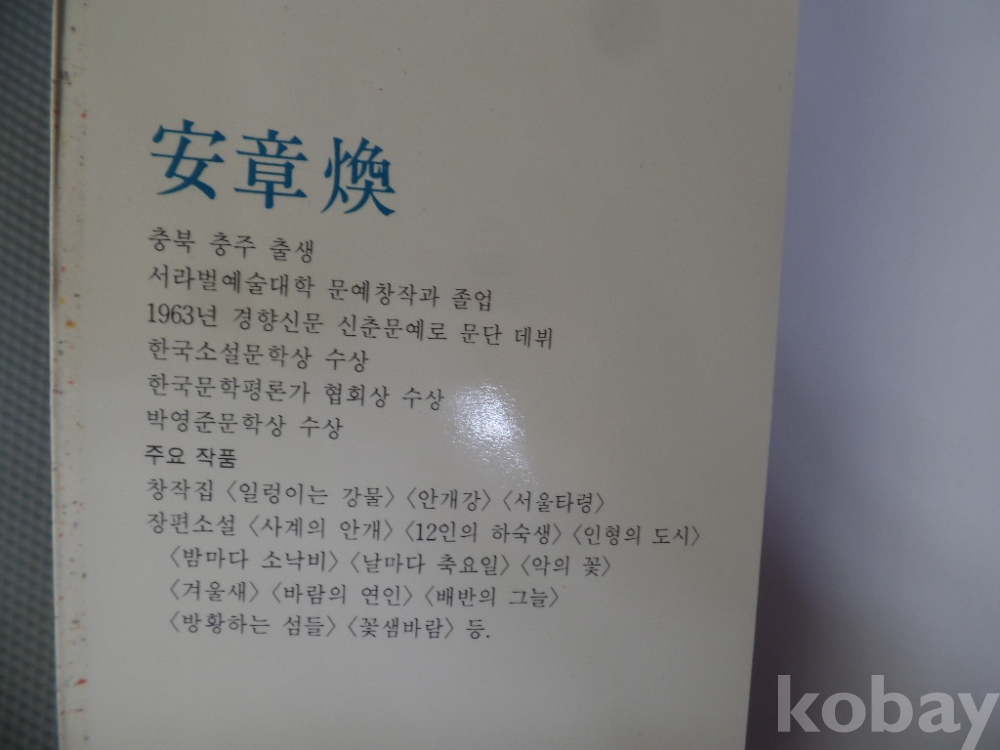 安章煥
충북 충주 출생
서라벌예술대학 문예창작과 졸업
1963년 경향신문 신춘문예로 문단 데뷔
한국소설문학상 수상
한국문학평론가 협회상 수상
박영준문학상 수상
주요 작품
창작집 〈일렁이는 강물〉 〈안개강〉 〈서울타령〉
장편소설 〈사계의 안개〉 〈12인의 하숙생〉 〈인형의 도시〉
〈밤마다 소낙비〉 〈날마다 축요일〉 〈악의 꽃〉
〈겨울새〉 〈바람의 연인〉 〈배반의 그늘〉
〈방황하는 섬들〉 〈꽃샘바람〉 등.
kobay